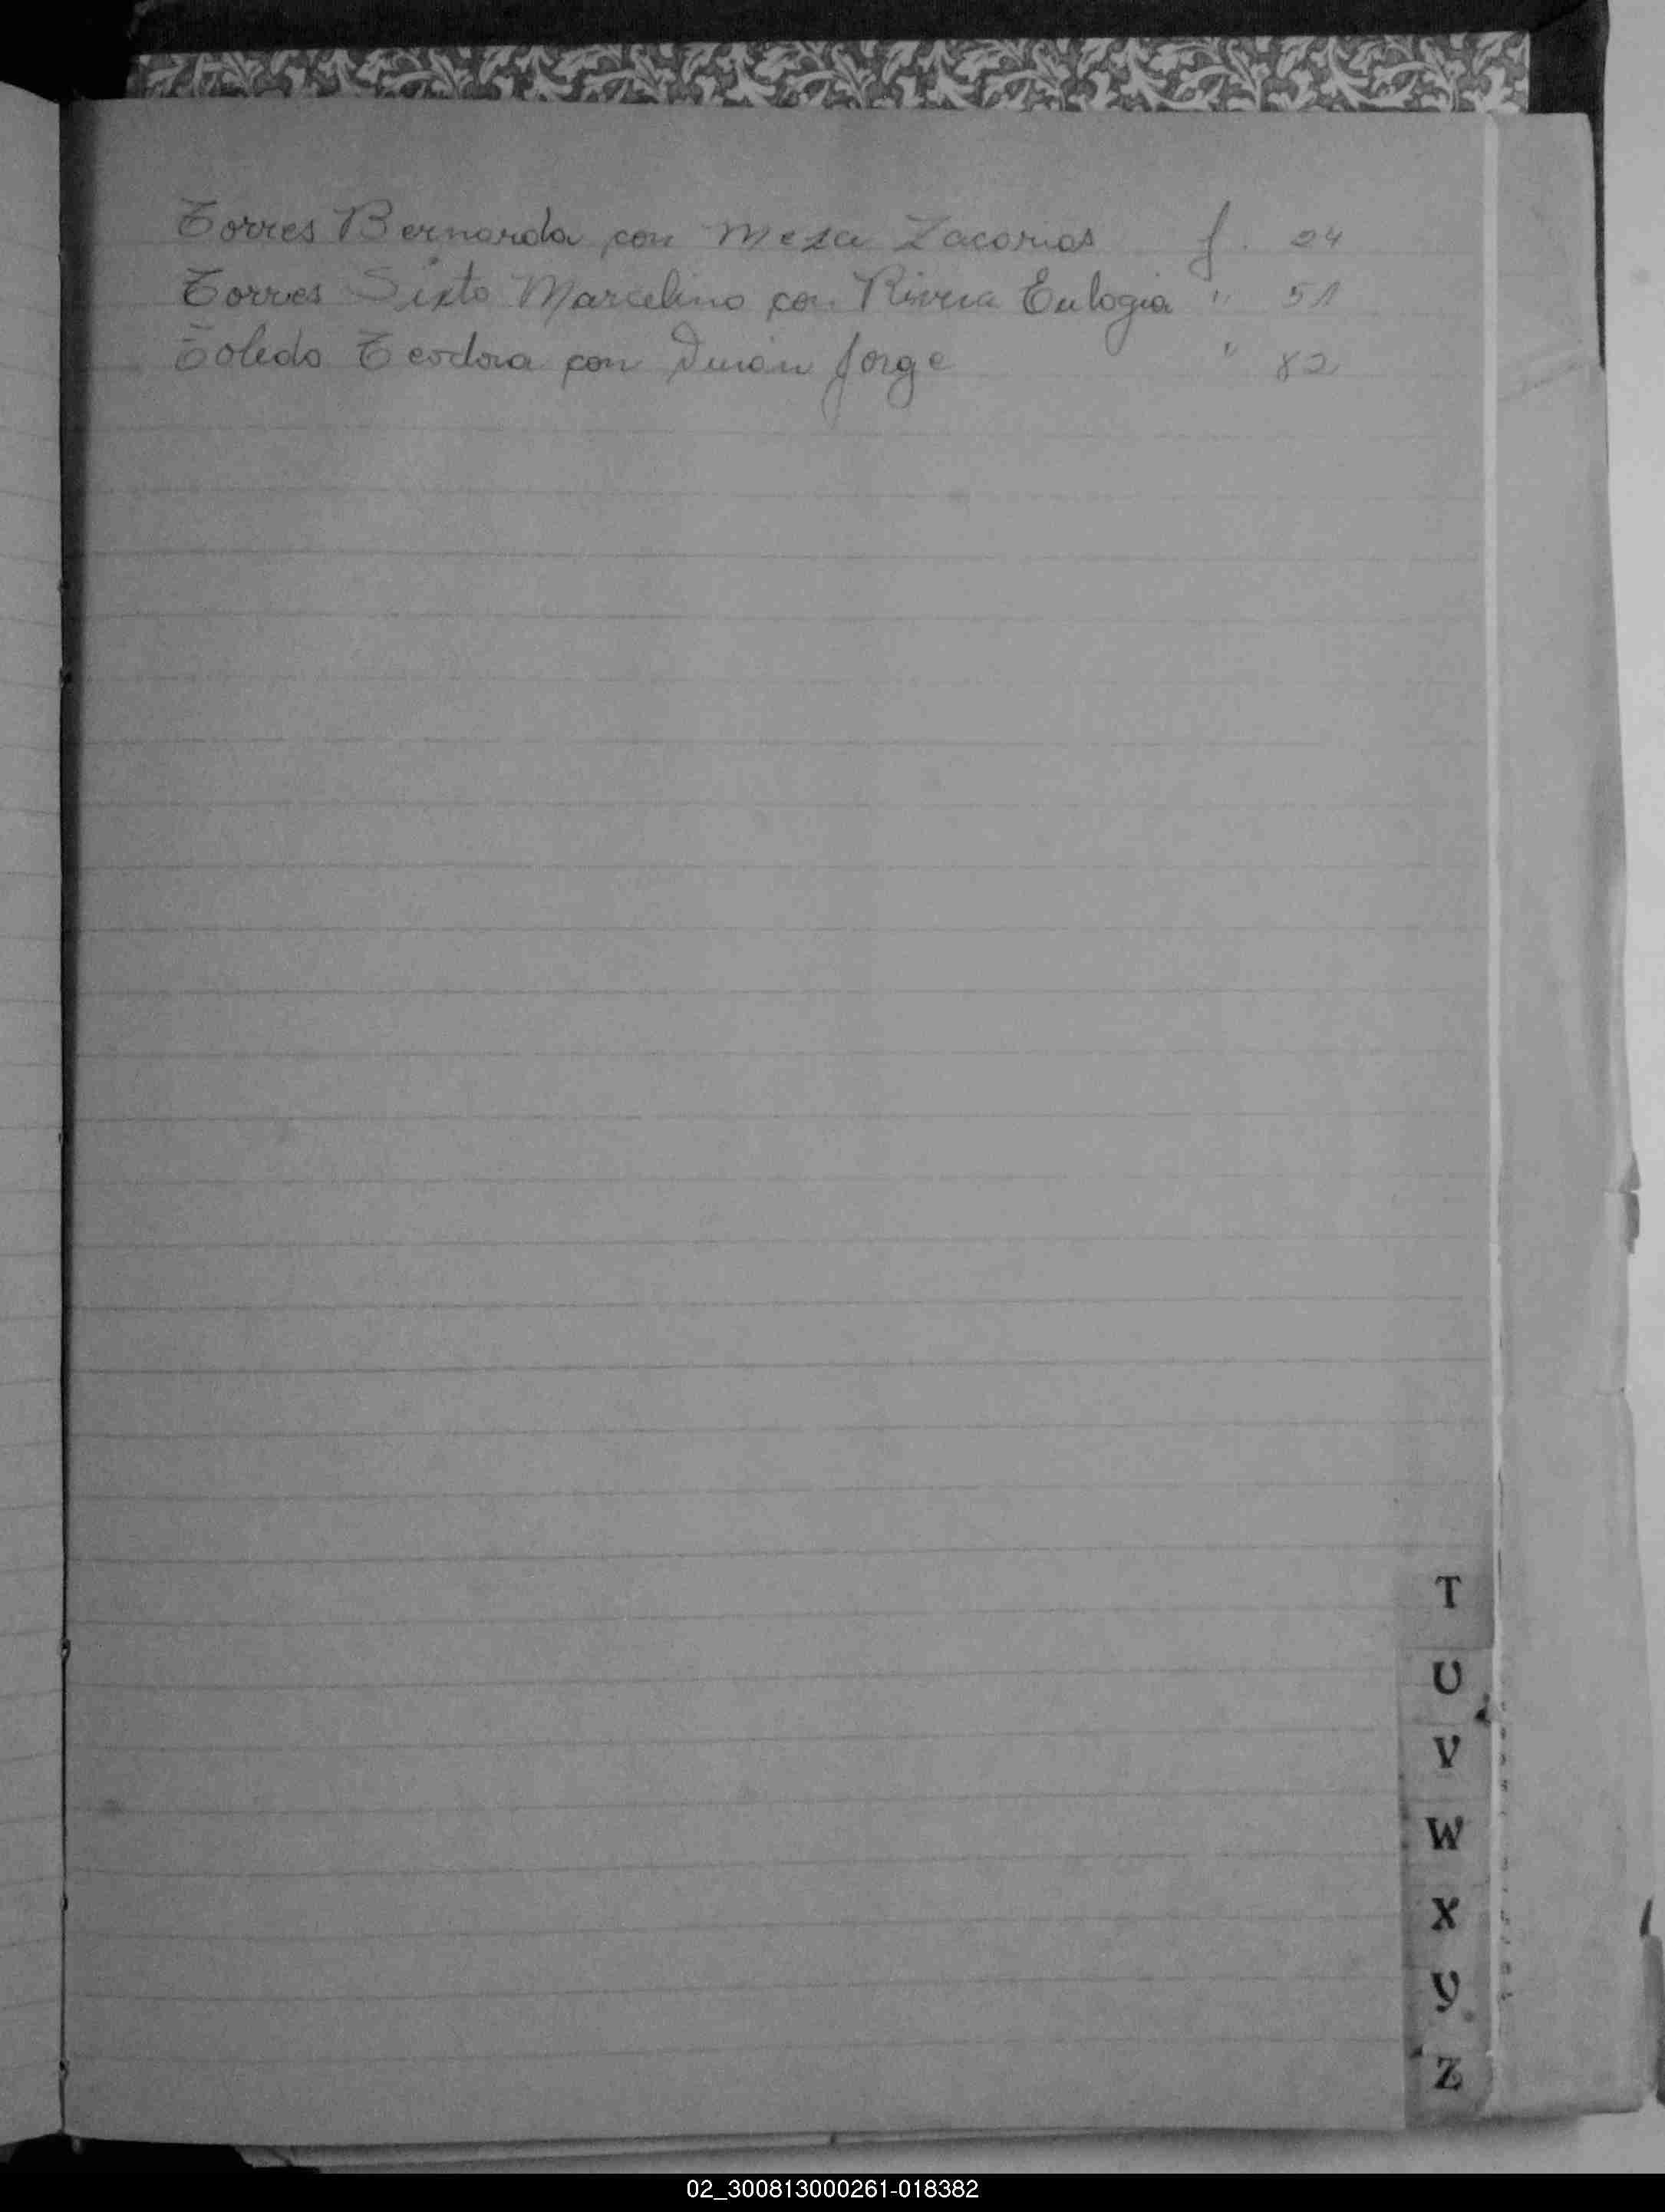 Torres Bernarda con Meza Zacarias f. 24
Torres Sixto Marcelino con Rivera Eulogia " 51
Toledo Teodora con Durán Jorge " 82
T
U
V
W
X
Y
Z
02_300813000261-018382